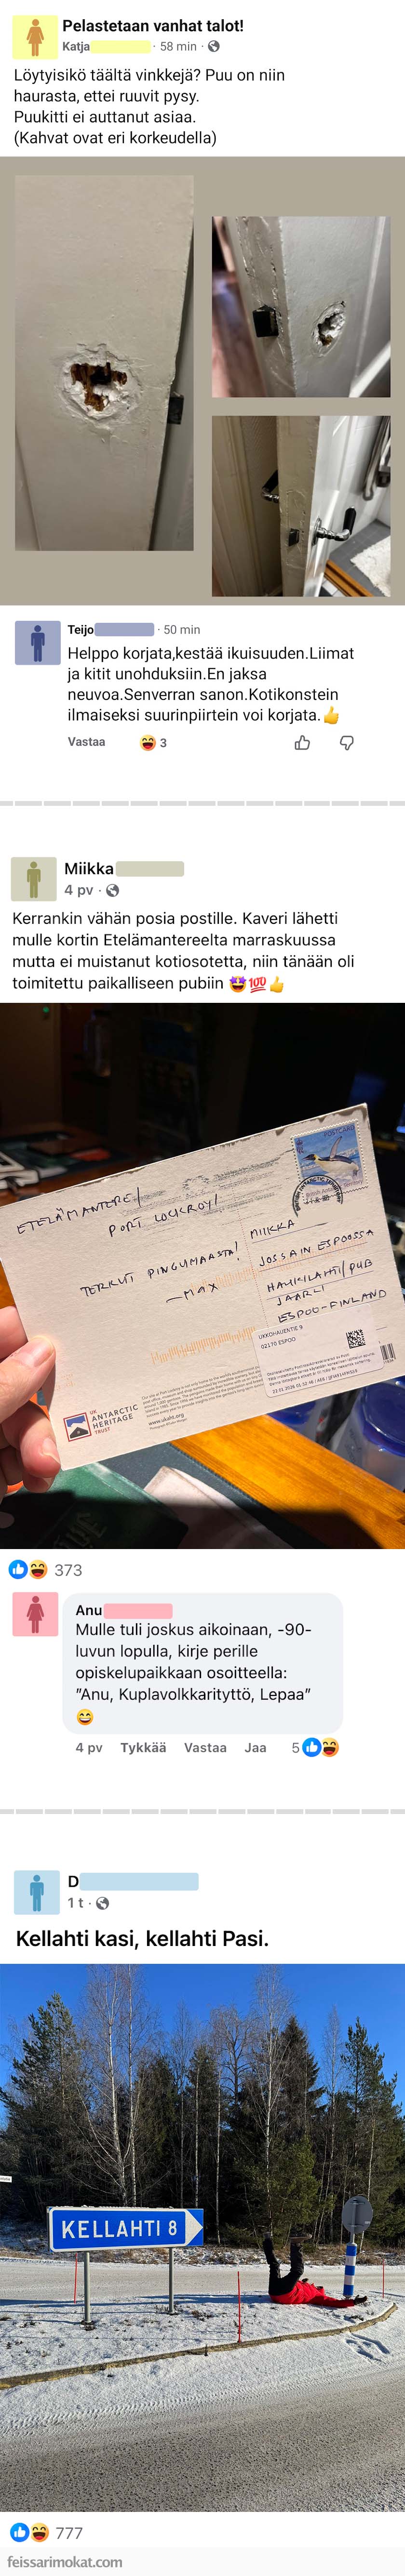 Pelastetaan vanhat talot!
Katja · 58 min ·
Löytyisikö täältä vinkkejä? Puu on niin
haurasta, ettei ruuvit pysy.
Puukitti ei auttanut asiaa.
(Kahvat ovat eri korkeudella)
Teijo · 50 min
Helppo korjata,kestää ikuisuuden.Liimat
ja kitit unohduksiin.En jaksa
neuvoa.Senverran sanon.Kotikonstein
ilmaiseksi suurinpiirtein voi korjata.👍
Vastaa 😆 3
Miikka
4 pv ·
Kerrankin vähän posia postille. Kaveri lähetti
mulle kortin Etelämantereelta marraskuussa
mutta ei muistanut kotiosotetta, niin tänään oli
toimitettu paikalliseen pubiin 🤩💯👍
POSTCARD
ETELÄMANTERE/
PORT LOCKROY/
TERKUT PINGUMAASTA!
—MAX
MIIKKA
JOSSAIN ESPOOSSA
HAUKILAHTI/PUB
JAARLI
ESPOO-FINLAND
UKKOHAUENTIE 9
02170 ESPOO
UK
ANTARCTIC
HERITAGE
TRUST
www.ukaht.org
373
Anu
Mulle tuli joskus aikoinaan, -90-
luvun lopulla, kirje perille
opiskelupaikkaan osoitteella:
"Anu, Kuplavolkkarityttö, Lepaa"
😄
4 pv Tykkää Vastaa Jaa 5
D
1 t ·
Kellahti kasi, kellahti Pasi.
KELLAHTI 8
777
feissarimokat.com